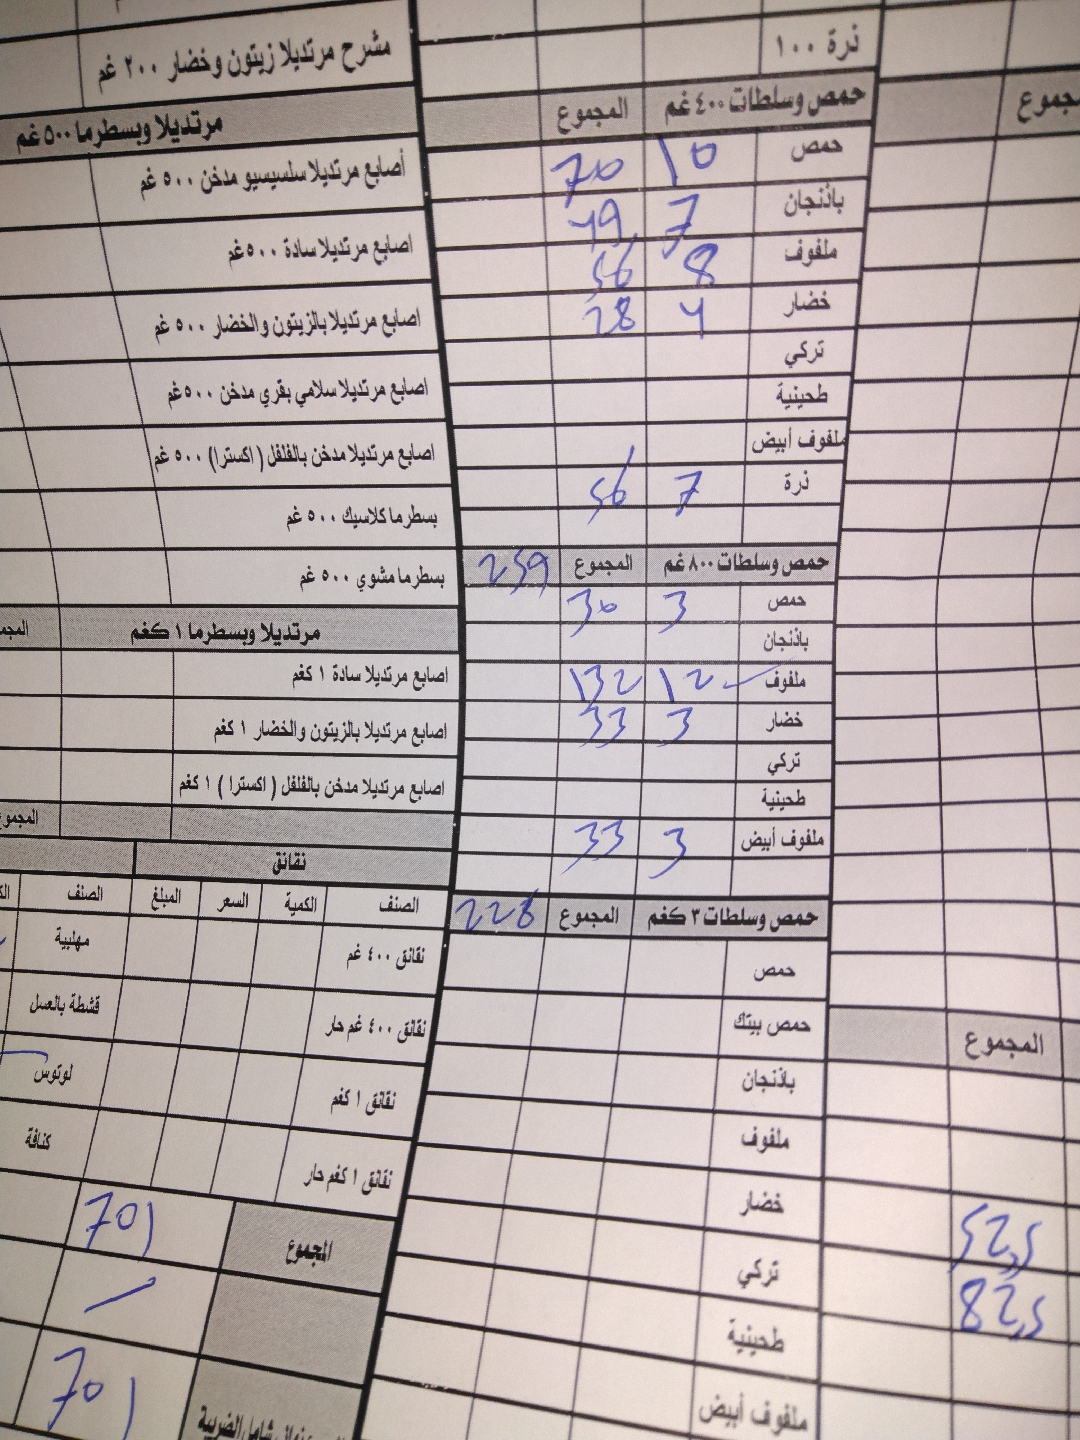 ذرة ١٠٠
حمص وسلطات ٤٠٠ غم المجموع
حمص 10 70
باذنجان 7 49
ملفوف 8 56
خضار 4 28
تركي
طحينية
ملفوف أبيض
ذرة 7 56
حمص وسلطات ٨٠٠ غم المجموع 259
حمص 3 30
باذنجان
ملفوف 12 132
خضار 3 33
تركي
طحينية
ملفوف أبيض 3 33
حمص وسلطات ٣ كغم المجموع 228
حمص
حمص بيتك
باذنجان
ملفوف
خضار
تركي
طحينية
ملفوف أبيض
المجموع
52,5
82,5
مشرح مرتديلا زيتون وخضار ٢٠٠ غم
مرتديلا وبسطرما ٥٠٠ غم
أصابع مرتديلا سلسيسيو مدخن ٥٠٠ غم
اصابع مرتديلا سادة ٥٠٠ غم
اصابع مرتديلا بالزيتون والخضار ٥٠٠ غم
اصابع مرتديلا سلامي بقري مدخن ٥٠٠ غم
اصابع مرتديلا مدخن بالفلفل ( اكسترا) ٥٠٠ غم
بسطرما كلاسيك ٥٠٠ غم
بسطرما مشوي ٥٠٠ غم
مرتديلا وبسطرما ١ كغم
اصابع مرتديلا سادة ١ كغم
اصابع مرتديلا بالزيتون والخضار ١ كغم
اصابع مرتديلا مدخن بالفلفل ( اكسترا ) ١ كغم
المجموع
نقانق
الصنف الكمية السعر المبلغ الصنف
نقانق ٤٠٠ غم مهلبية
نقانق ٤٠٠ غم حار قشطة بالعسل
نقانق ١ كغم لوتوس
نقانق ١ كغم حار كنافة
المجموع 701
701
شامل الضريبة